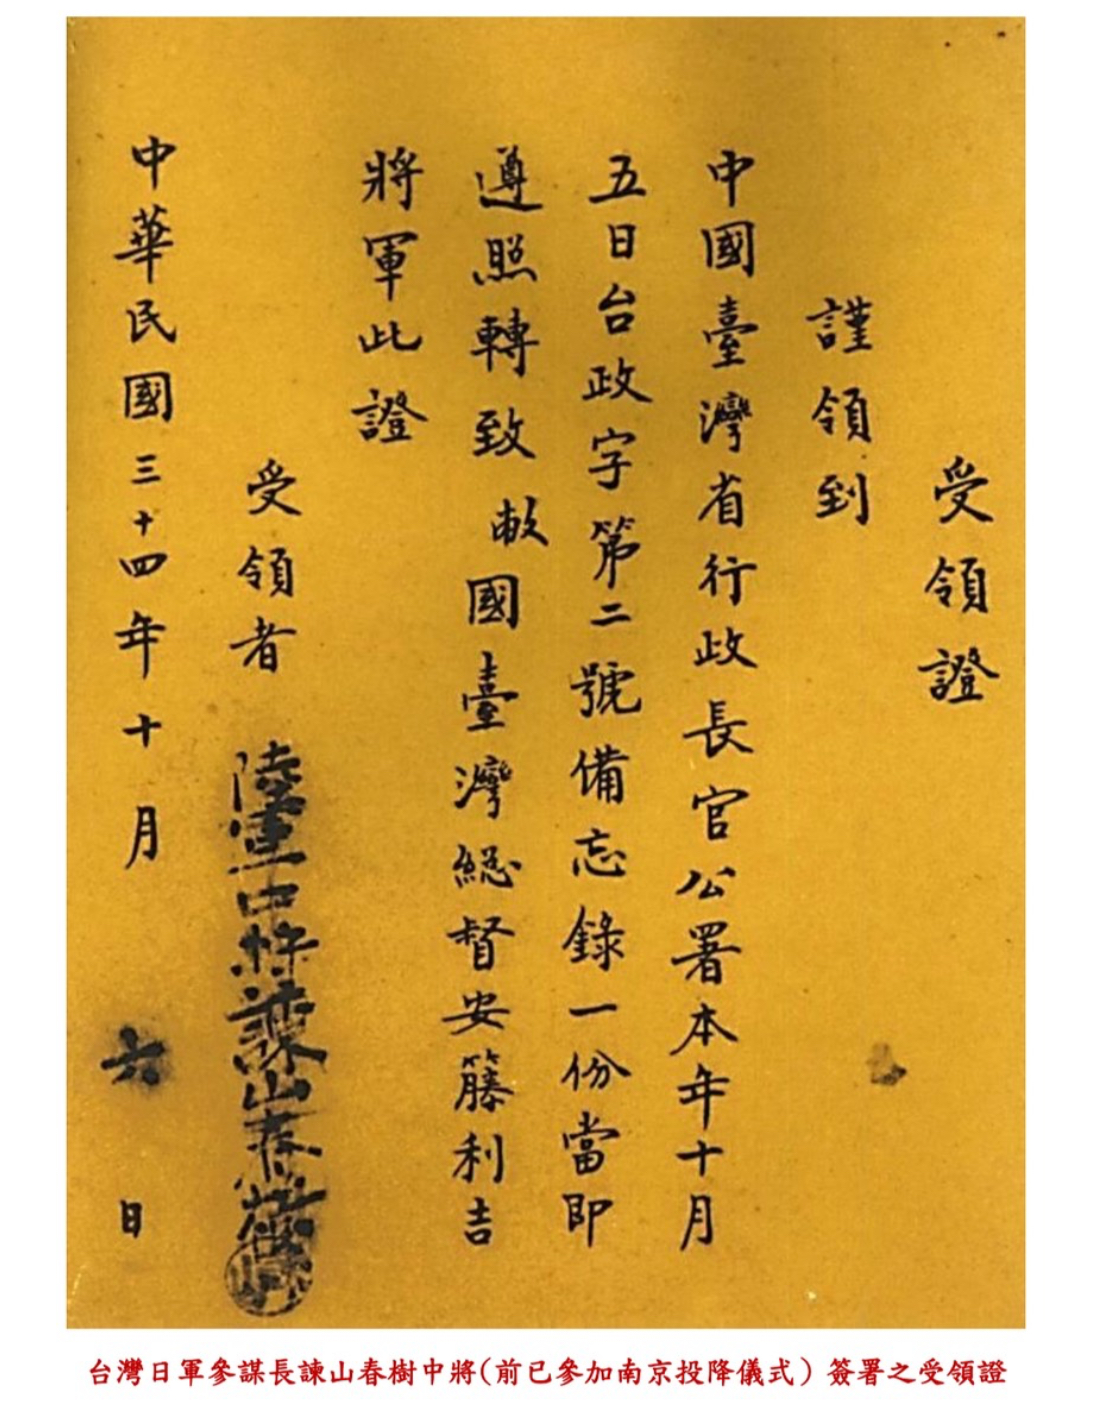 受領證
謹領到
中國臺灣省行政長官公署本年十月
五日台政字第二號備忘錄一份當即
遵照轉致敝國臺灣総督安籐利吉
將軍此證
受領者 陸軍中將諫山春樹
中華民國三十四年十月 六 日
台灣日軍參謀長諫山春樹中將(前已參加南京投降儀式)簽署之受領證